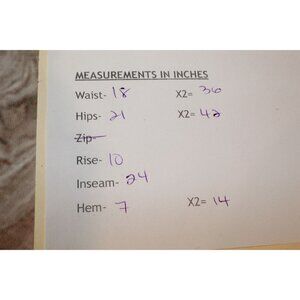 MEASUREMENTS IN INCHES
Waist- 18 X2= 36
Hips- 21 X2= 42
Zip-
Rise- 10
Inseam- 24
Hem- 7 X2= 14